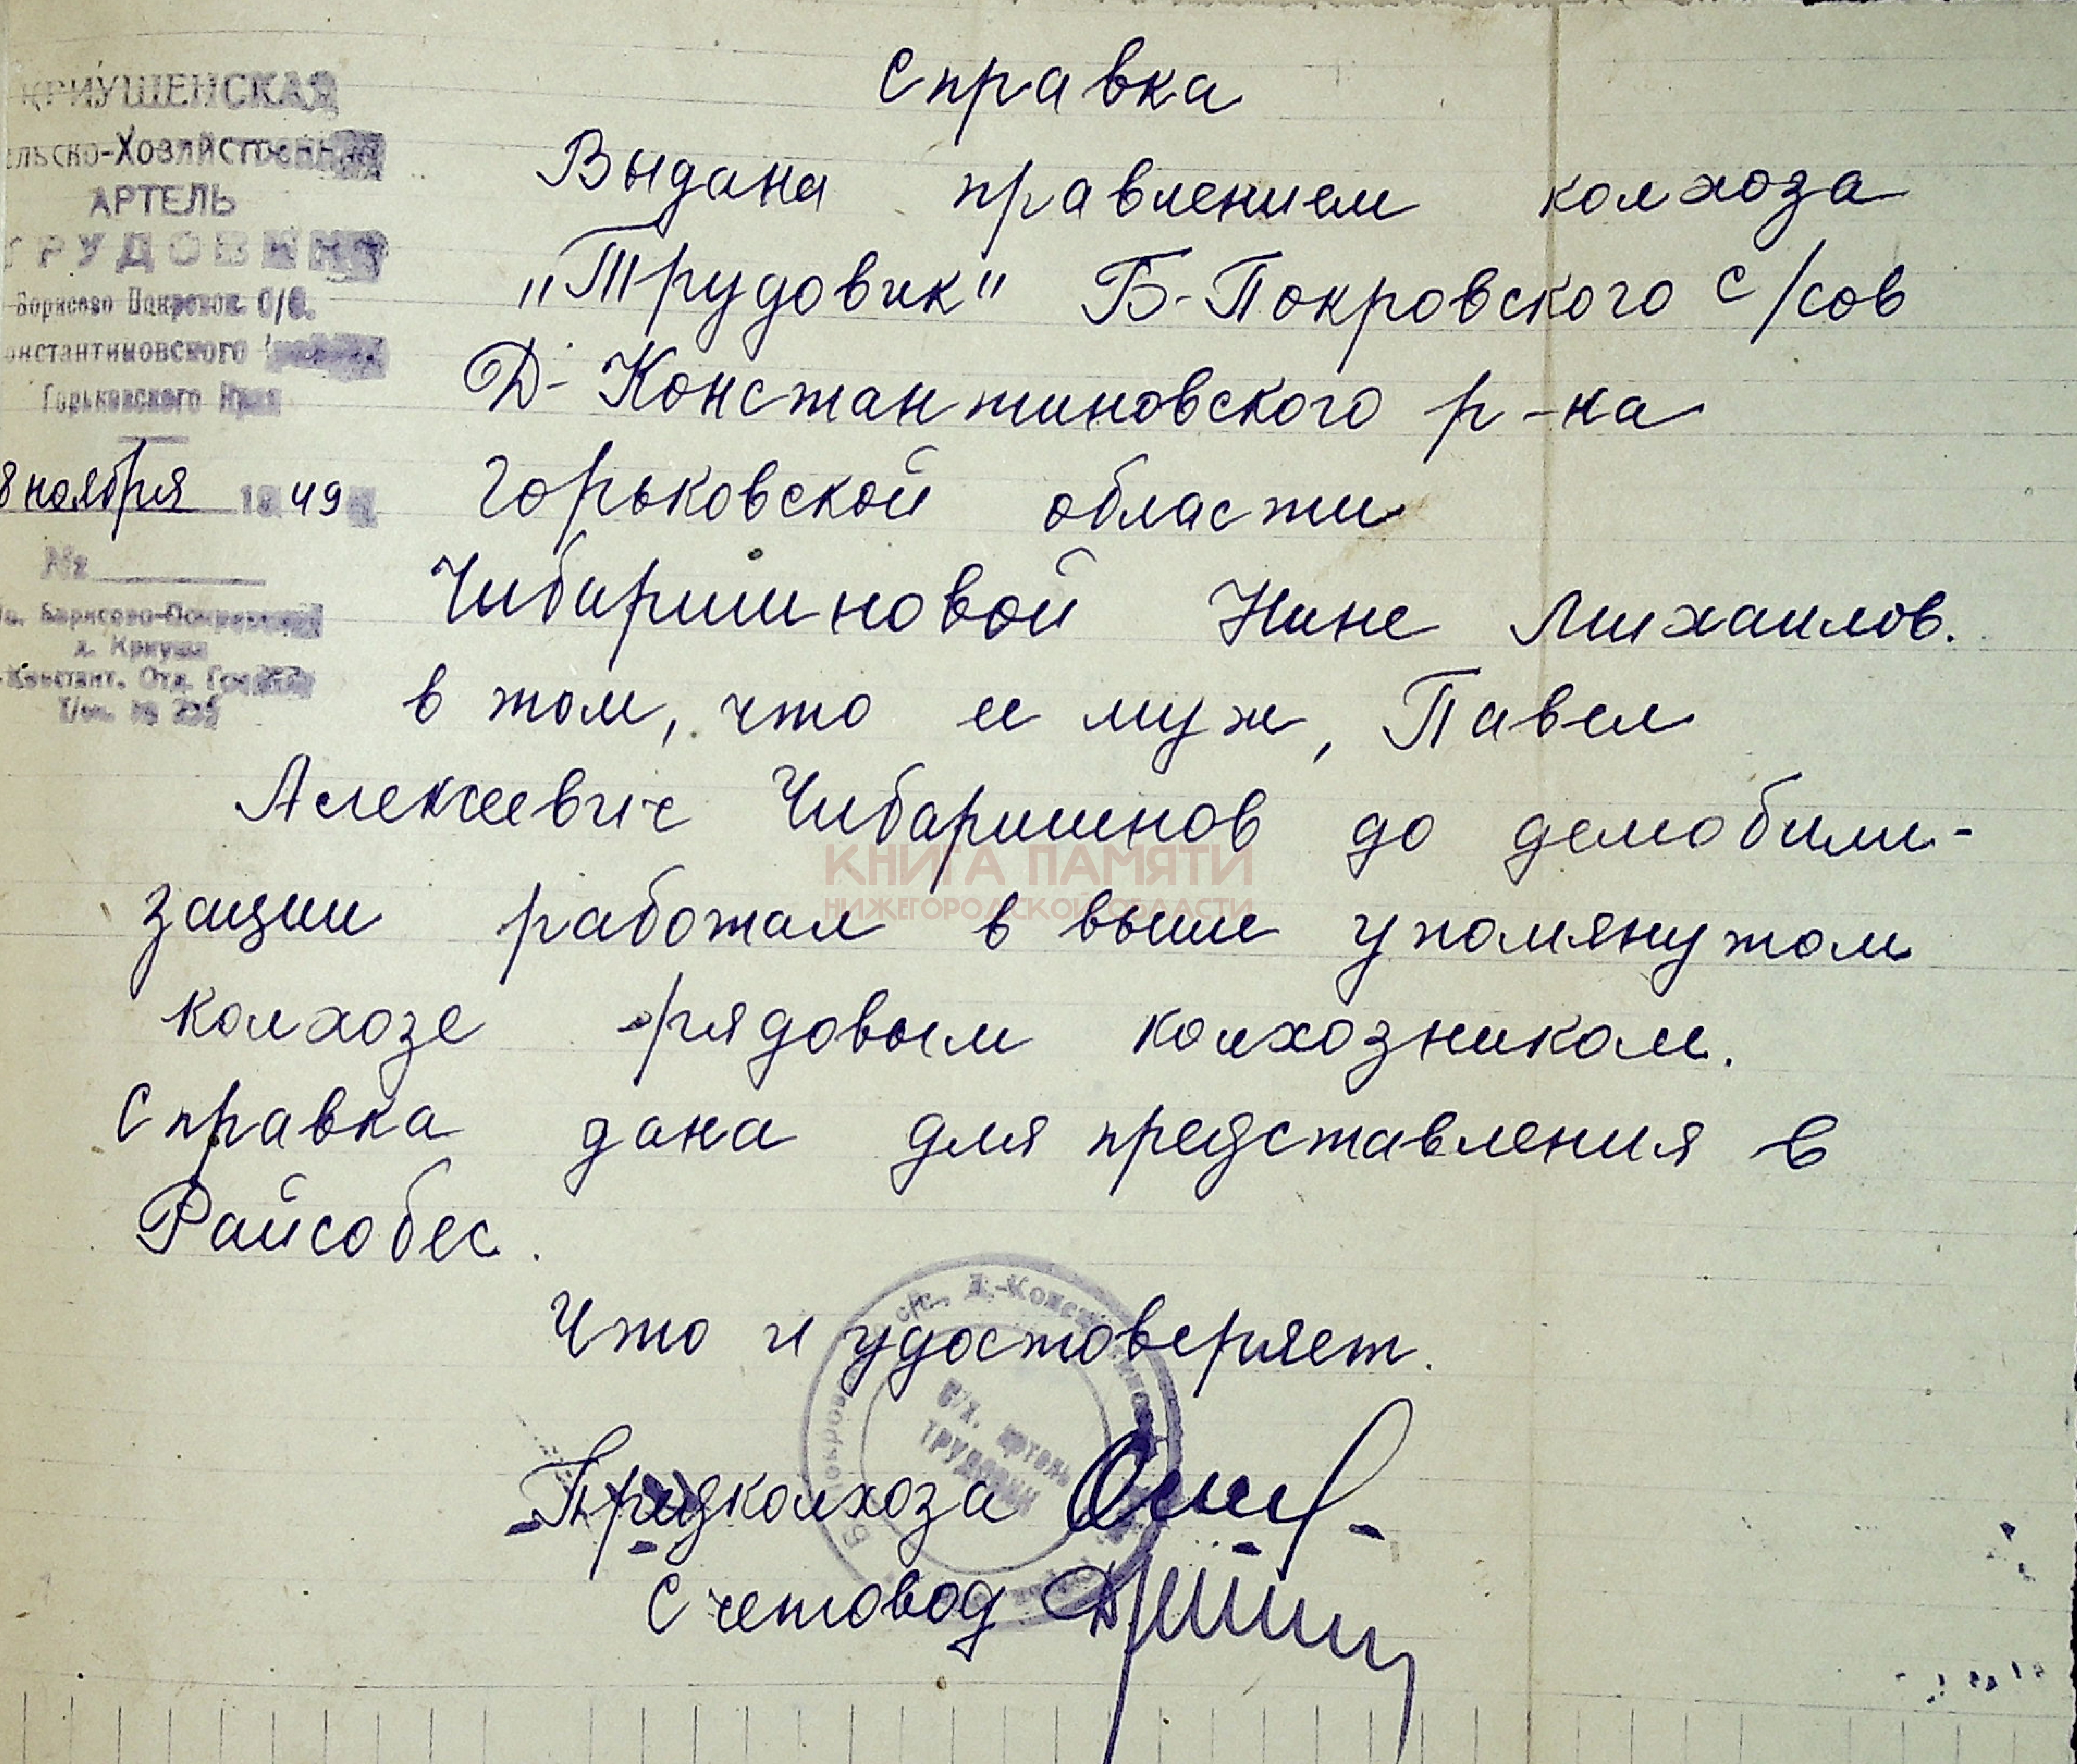 КРИУШЕНСКАЯ
ельско-Хозяйственная
АРТЕЛЬ
ТРУДОВИК
Борисово Покровск. С/С.
онстантиновского района
Горьковского Края
8 ноября 1949
№
Борисово-Покровский
д. Криуши
Констант. Отд. Гос
Т/сч. № 235
Справка
Выдана правлением колхоза
„Трудовик" Б-Покровского с/сов
Д-Константиновского р-на
Горьковской области
Чибаришновой Нине Михаилов.
в том, что ее муж, Павел
Алексеевич Чибаришнов до демобили-
зации работал в выше упомянутом
колхозе рядовым колхозником.
Справка дана для представления в
Райсобес.
Что и удостоверяет.
Предколхоза
Счетовод
КНИГА ПАМЯТИ
НИЖЕГОРОДСКОЙ ОБЛАСТИ
Б Покров с/с., Д.-Конст
С/Х. артель
ТРУДОВИК